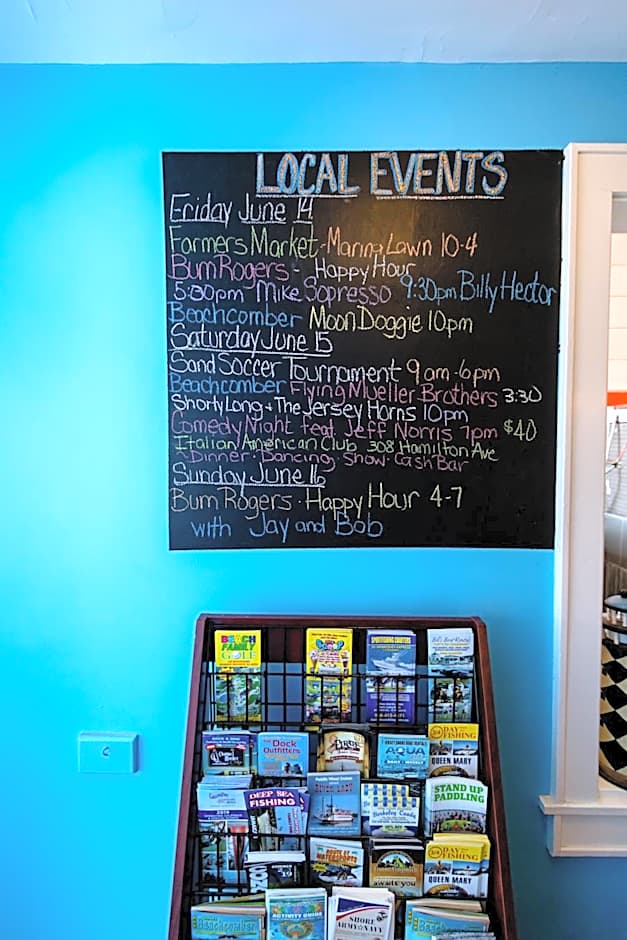 LOCAL EVENTS
Friday June 14
Farmers Market - Marina Lawn 10-4
Bum Rogers - Happy Hour
5:30pm Mike Sopresso 9:30pm Billy Hector
Beachcomber Moon Doggie 10pm
Saturday June 15
Sand Soccer Tournament 9am-6pm
Beachcomber Flying Mueller Brothers 3:30
Shorty Long + The Jersey Horns 10pm
Comedy Night feat. Jeff Norris 7pm $40
Italian American Club 308 Hamilton Ave
Dinner · Dancing · Show · Cash Bar
Sunday June 16
Bum Rogers · Happy Hour 4-7
with Jay and Bob
BEACH
FAMILY
GOLF
Dock
Outfitters
AQUA
DAY
FISHING
QUEEN MARY
DEEP SEA
FISHING
RIVER LADY
STAND UP
PADDLING
DAY
FISHING
QUEEN MARY
awaits you
Beachcomber
ACTIVITY GUIDE
SHORE
ARMY & NAVY
Beachcomber